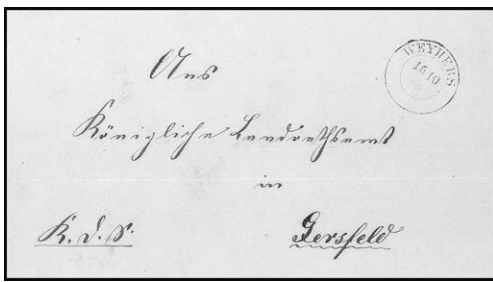 WEYHERS
10
Ans
Königliche Landrathsamt
in
K. D. S. Gersfeld